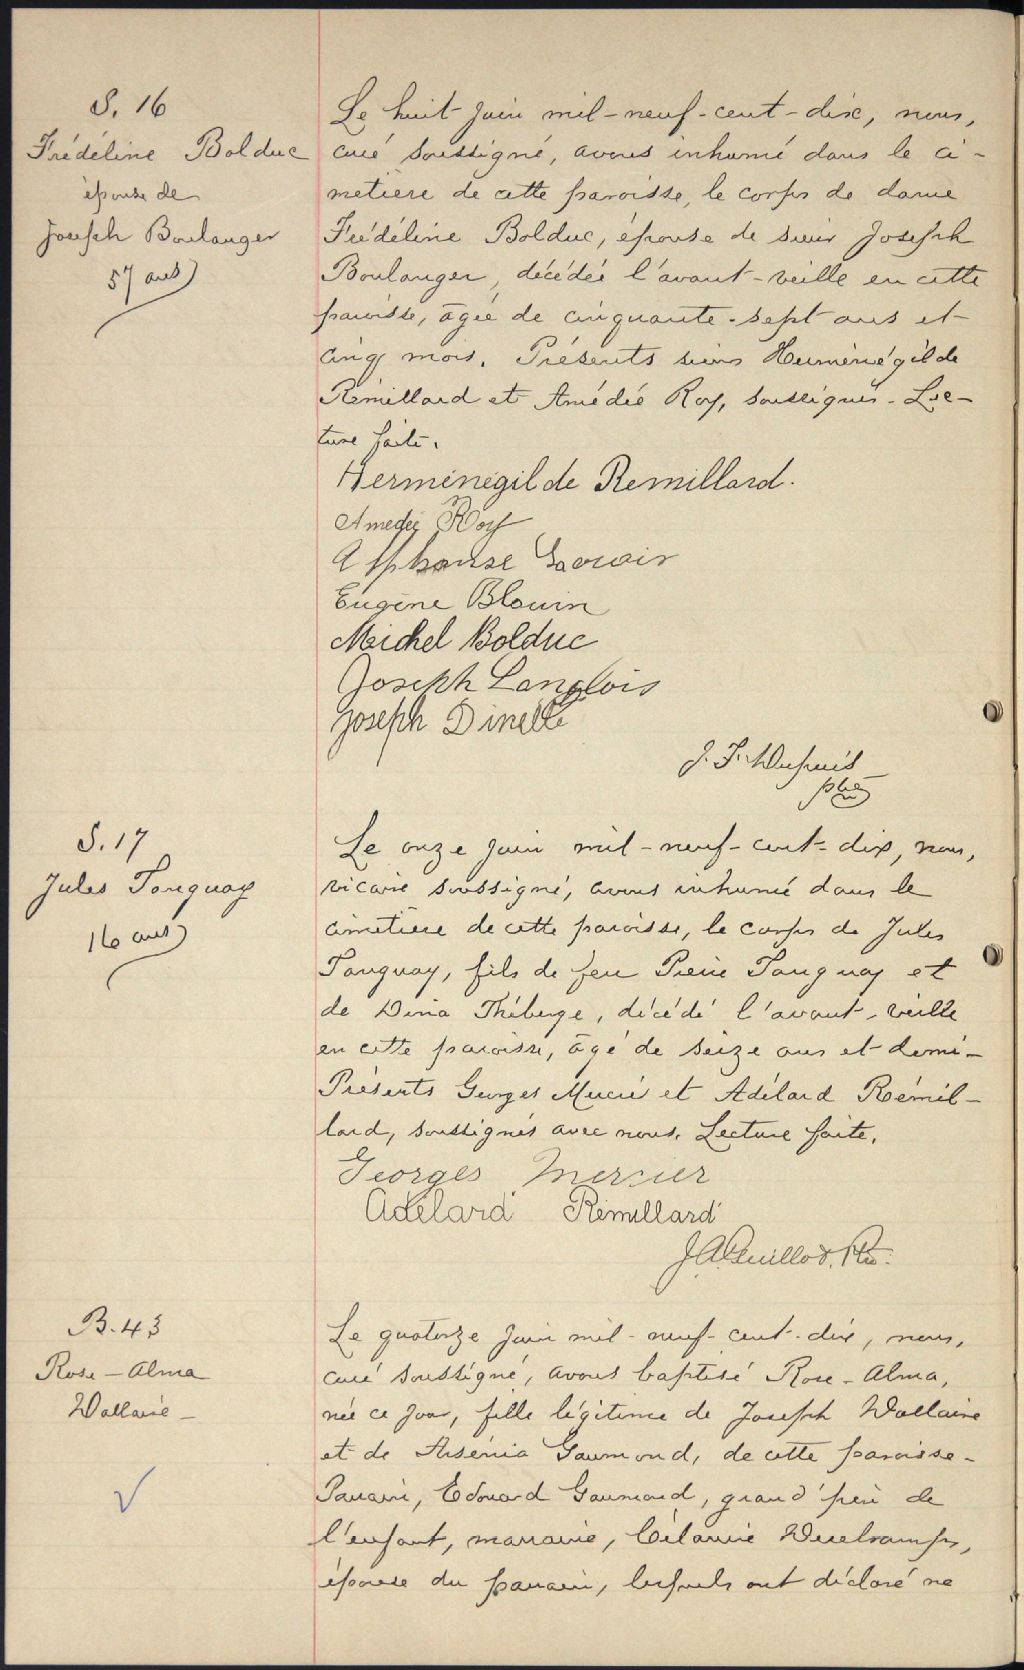 S. 16
Frédéline Bolduc
épouse de
Joseph Boulanger
57 ans
Le huit juin mil-neuf-cent-dix, nous,
curé soussigné, avons inhumé dans le ci-
metière de cette paroisse, le corps de dame
Frédéline Bolduc, épouse de sieur Joseph
Boulanger, décédée l'avant-veille en cette
paroisse, âgée de cinquante-sept ans et
cinq mois. Présents sieurs Herménégilde
Rémillard et Amédée Roy, soussignés. Lec-
ture faite.
Herménégilde Remillard.
Amedée Roy
Alphonse Gavoir
Eugène Blouin
Michel Bolduc
Joseph Langlois
Joseph Dinelle
J. F. Dupuis
ptre
S. 17
Jules Tanguay
16 ans
Le onze juin mil-neuf-cent-dix, nous,
vicaire soussigné, avons inhumé dans le
cimetière de cette paroisse, le corps de Jules
Tanguay, fils de feu Pierre Tanguay et
de Dina Théberge, décédé l'avant-veille
en cette paroisse, âgé de seize ans et demi-
Présents Georges Mercier et Adélard Rémil-
lard, soussignés avec nous. Lecture faite.
Georges Mercier
Adélard Rémillard
J. A. Guillot, Ptre.
B. 43
Rose-Alma
Vallaire -
Le quatorze juin mil-neuf-cent-dix, nous,
curé soussigné, avons baptisé Rose-Alma,
née ce jour, fille légitime de Joseph Vallaire
et de Arsénia Gaumond, de cette paroisse-
Parrain, Edouard Gaumond, grand'père de
l'enfant, marraine, Célanire
épouse du parrain, lesquels ont déclaré ne